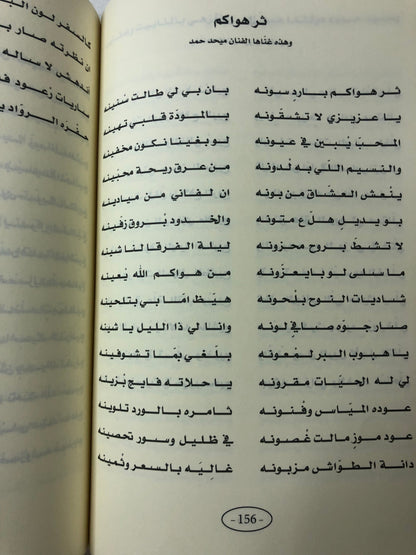 ثر هواكم
وهذه غنّاها الفنان ميحد حمد
ثر هواكم بارد سونه بان بي لي طالت سنينه
يا عزيزي لا تشقّونه بالمودّة قلبي تهينه
المحبّ يْبين في عيونه لو بغينا نكون مخفينه
والنسيم اللّي به لْدونه من عرق ريحة محبّينه
ينْعش العشّاق من بونه ان لفاني من ميادينه
بو بديلٍ هلّع متونه والخدود بْروق زفينه
لا تشطّ بروح محزونه ليلة الفرقا لنا شينه
ما سلى لو بايعزّونه من هواكم الله يْعينه
شاديات النوح بلْحونه هيّظ امّا بي بتلحينه
صار جوّه صافي لونه وانا لي ذا الليل يا شينه
يا هبوب البر لمعونه بلّغي بمَا تشوفينه
لي له الحيّات مقرونه يا حلاته فايح بْزينه
عوده الميّاس وفْنونه ثامره بالورد تلوينه
عود موزٍ مالت غصونه في ظليل وسور تحصينه
دانة الطوّاش مزبونه غاليَه بالسعر وثْمينه
- 156 -